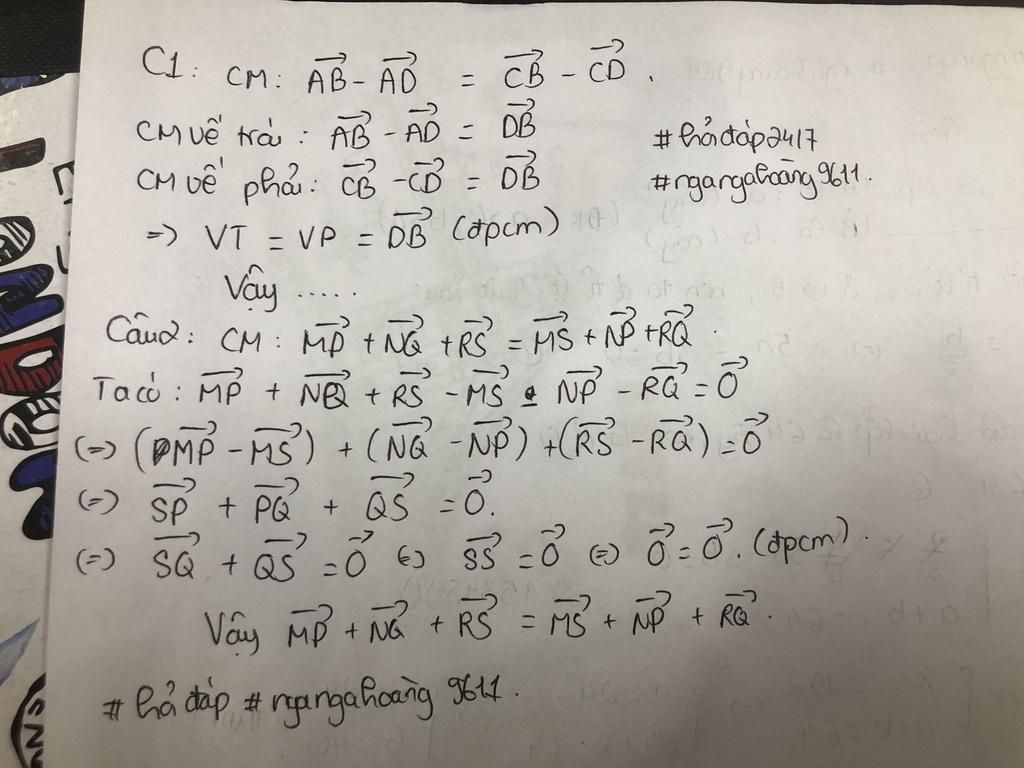 C1: CM: AB - AD = CB - CD.
CM vế trái: AB - AD = DB
#hỏiđáp2417
CM vế phải: CB - CD = DB
#ngangahoàng9611.
=> VT = VP = DB (đpcm)
Vậy .....
Câu2: CM: MP + NQ + RS = MS + NP + RQ.
Ta có: MP + NQ + RS - MS - NP - RQ = 0
(=) (MP - MS) + (NQ - NP) + (RS - RQ) = 0
(=) SP + PQ + QS = 0.
(=) SQ + QS = 0 (=) SS = 0 (=) 0 = 0. (đpcm).
Vậy MP + NQ + RS = MS + NP + RQ.
#hỏiđáp #ngangahoàng 9611.